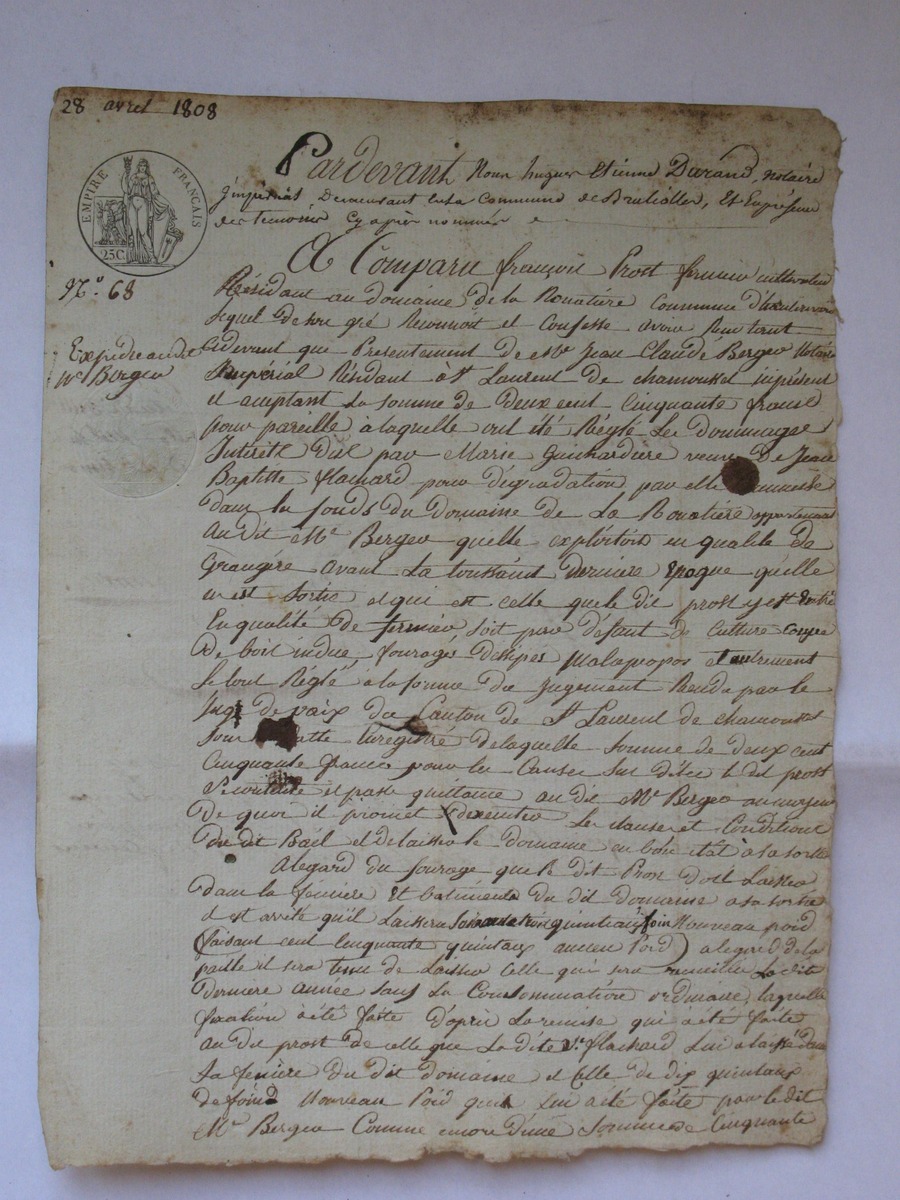 28 avril 1808
EMPIRE FRANÇAIS
25C.
N.º 68
Expédié audit
Mᵉ Berger
Pardevant Nous hugues Etienne Durand, notaire
impérial, Demeurant en la Commune de Brullolles, Et En présence
des temoins Cy après nommés
A Comparu françois Prost fermier cultivateur
Résidant au domaine de la Rouatière Commune d'hauterivoire
lequel de son gré Reconnoit et Confesse avoir Reçu tant
cidevant que Présentement de Mᵉ Jean Claude Berger Notaire
Impérial Résidant à Sᵗ Laurent de chamousset icy présent
et acceptant la somme de deux cent Cinquante francs
pour pareille à laquelle ont été Réglé Les Dommages
Intérêts dus par Marie Guichardière veuve De Jean
Baptiste flachard pour dégradation par elle commise
dans les fonds du Domaine de La Rouatière appartenant
au dit Mᵉ Berger quelle exploitoit en qualité de
Grangère avant La toussaint dernière Epoque qu'elle
en est Sortie et qui est celle que le dit prost y est Entré
En qualité de fermier, soit par défaut de Culture Coupe
De bois indue, fourages dissipés Malapropos et autrement
le tout Réglé a la forme du Jugement Rendu par le
Juge de paix du Canton de Sᵗ Laurent de chamousset
sous datte Enregistré de laquelle somme de deux cent
Cinquante francs pour les Causes sus dites le dit prost
se contente et passe quittance au dit Mᵉ Berger au moyen
De quoi il promet d'executer les clauses et Conditions
Du dit Bail et de laisser le Domaine en bon état à sa sortie
A legard du fourage que le dit Prost doit Laisser
dans la fenière Et batiments du dit Domaine a sa sortie
il est arrêté qu'il Laissera Soixante treize quintaux foin Nouveau poid
(faisant cent Cinquante quintaux ancien Poid) a legard de la
paille il sera tenu de Laisser Celle qui sera recueillie La dite
Derniere année sauf La Consommation ordinaire, laquelle
fixation a été faite D'après La remise qui a été faite
au dit prost de celle que La dite vᵉ flachard Lui a laissé dans
La fenière Du dit domaine et Celle de dix quintaux
de foin Nouveau Poid qui Lui a été faite par le dit
Mᵉ Berger Comme encore D'une Somme de Cinquante